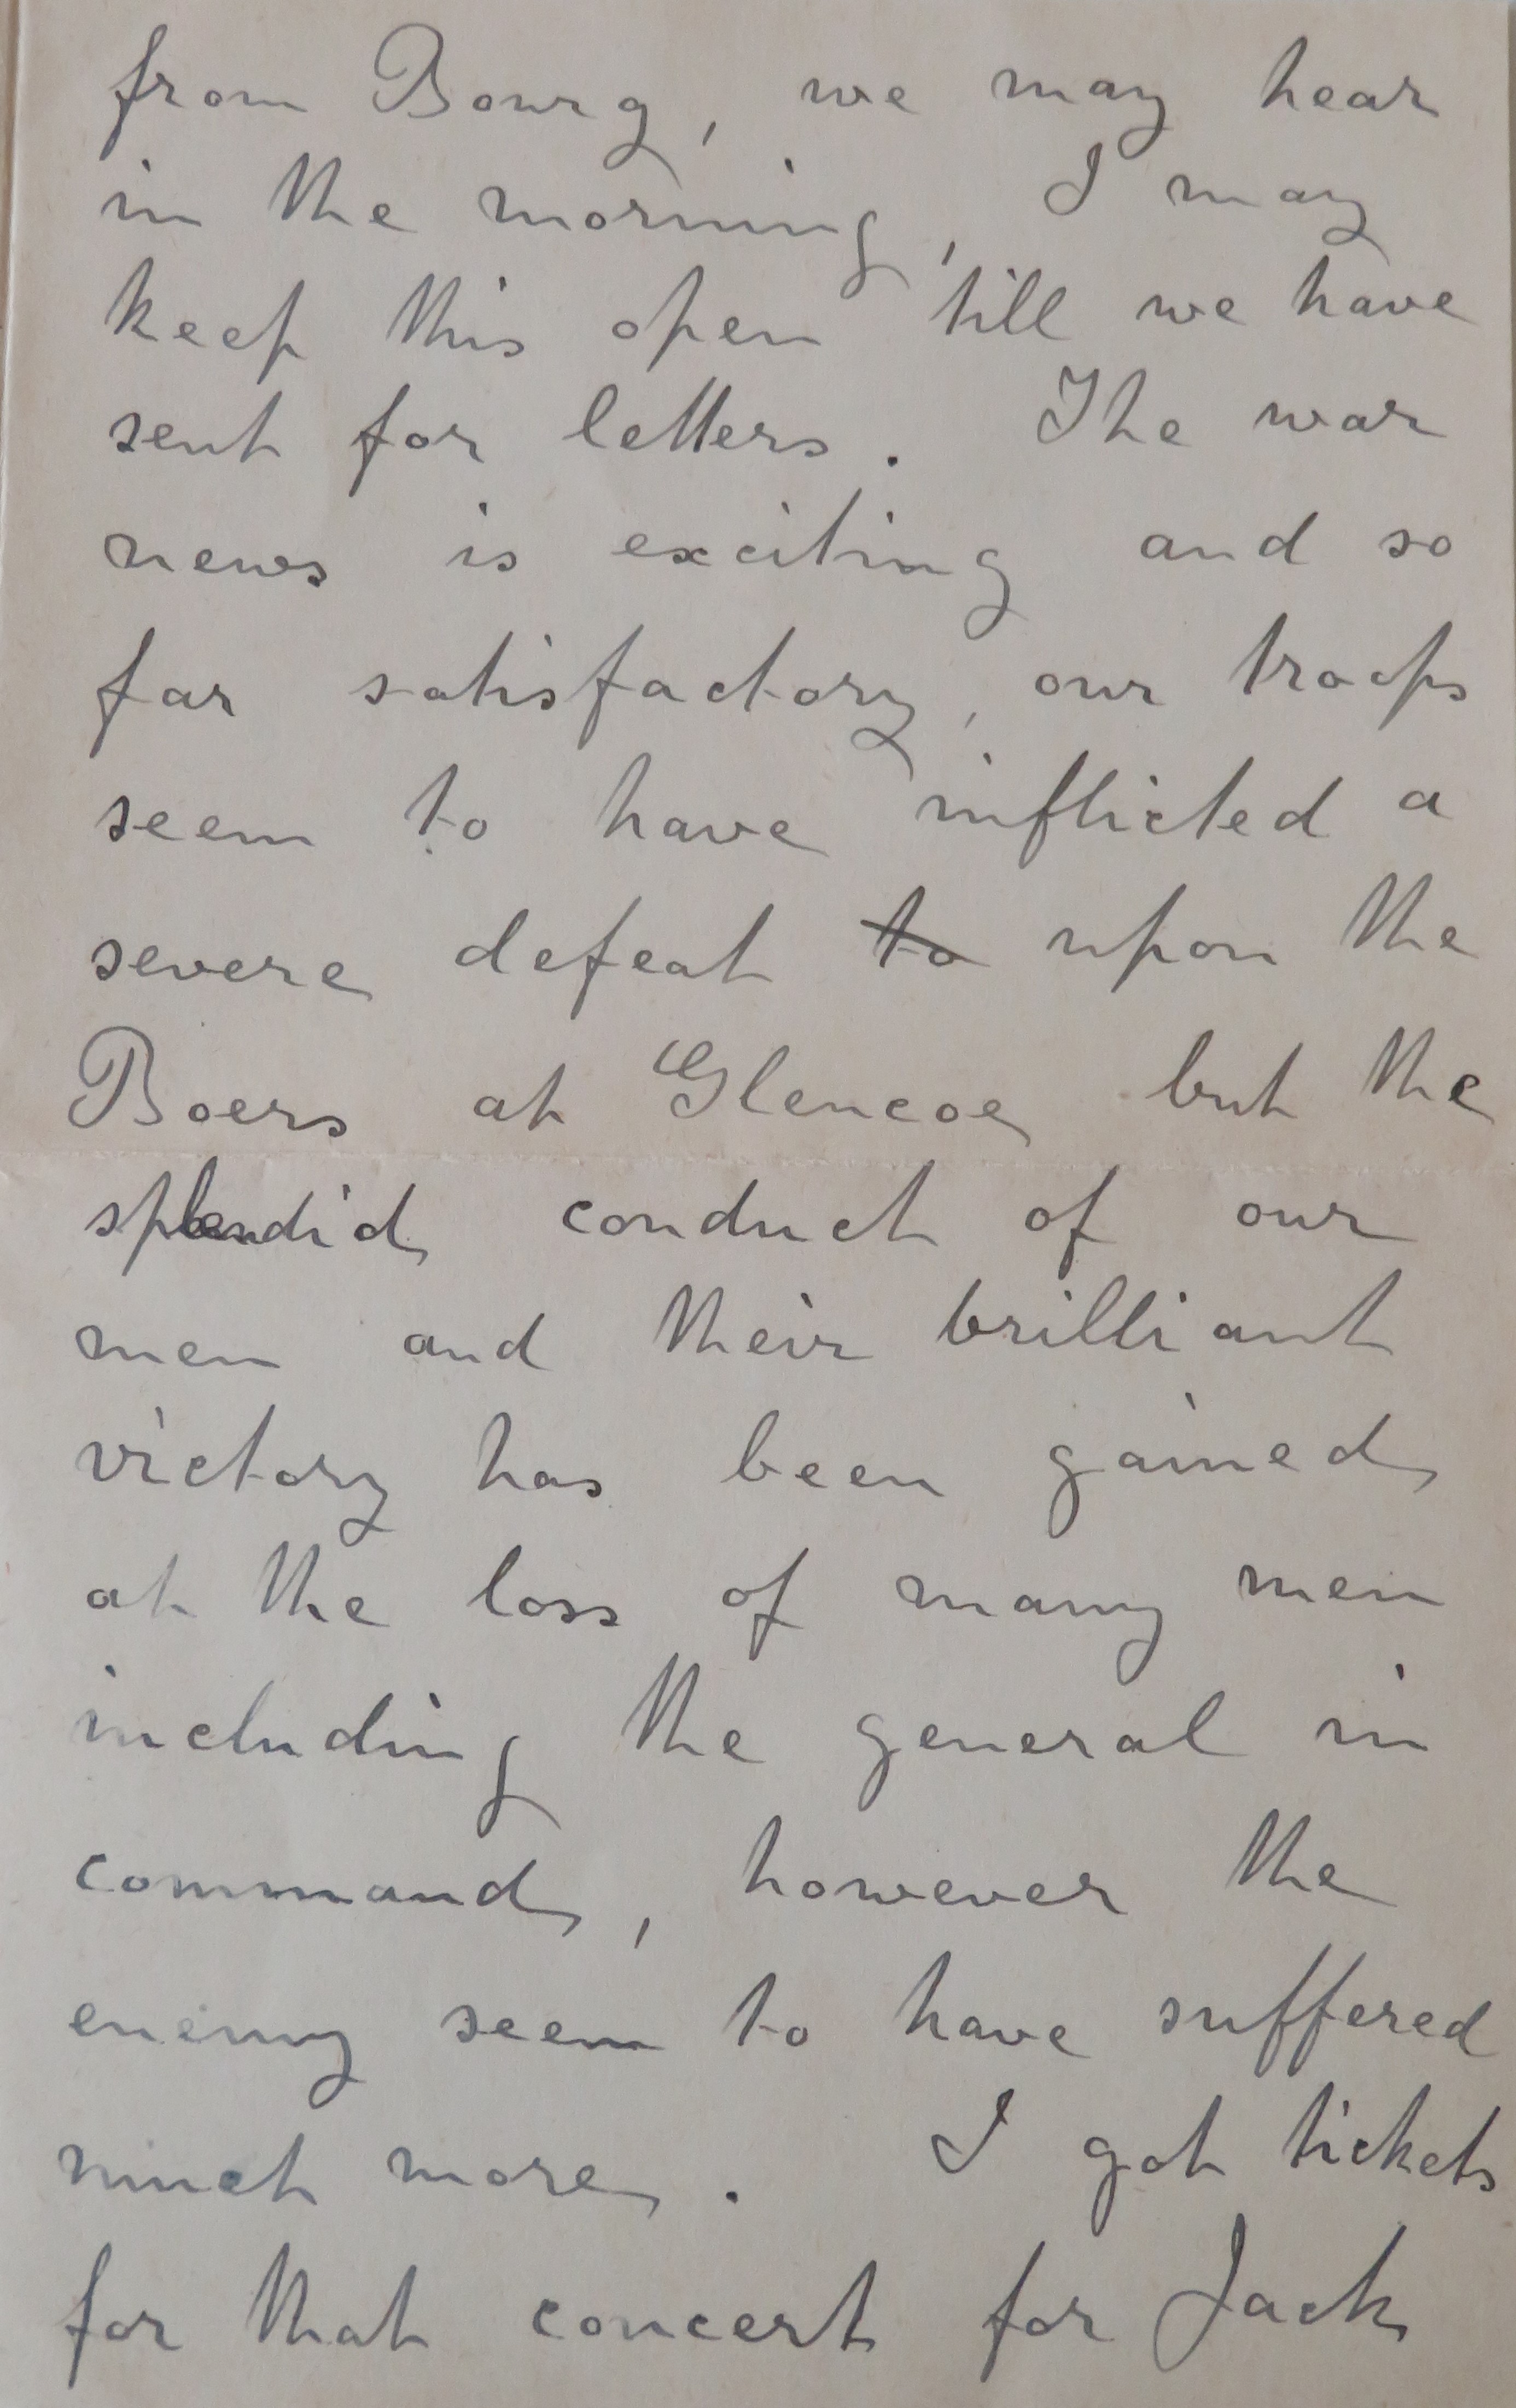 from Bourg, we may hear
in the morning, I may
keep this open till we have
sent for letters. The war
news is exciting and so
far satisfactory, our troops
seem to have inflicted a
severe defeat to upon the
Boers at Glencoe but the
splendid conduct of our
men and their brilliant
victory has been gained
at the loss of many men
including the general in
command, however the
enemy seem to have suffered
much more. I got tickets
for that concert for Jack